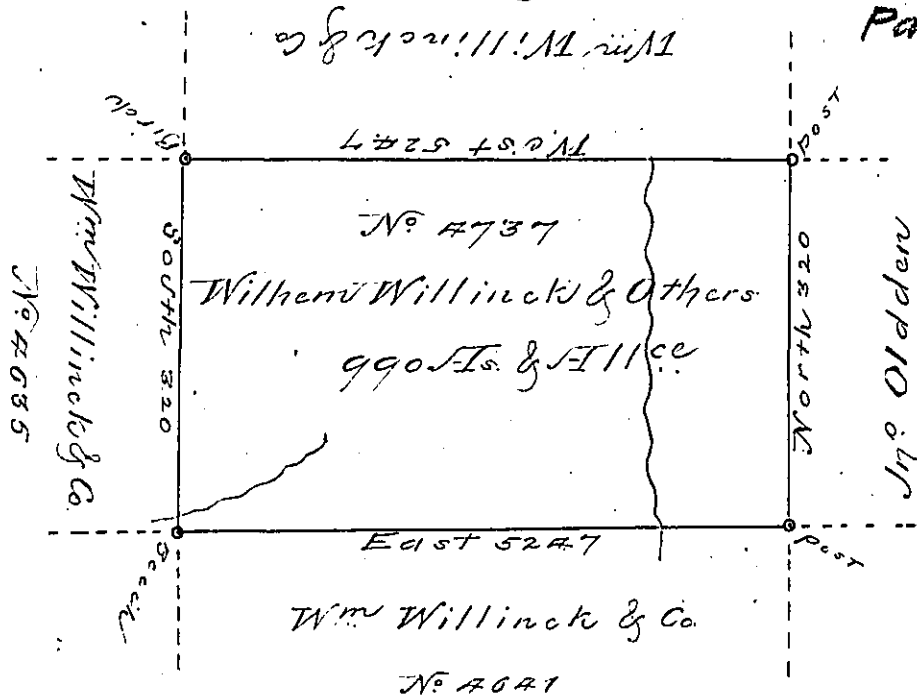 Pa
Wm Willinck & Co
Birch
West 5247
Post
Wm Willinck & Co.
No 4635
South 320
No 4737
Wilhem Willinck & Others
990 As. & Allce
North 320
Jno Oldden
Beech
East 5247
Post
Wm Willinck & Co.
No 4641